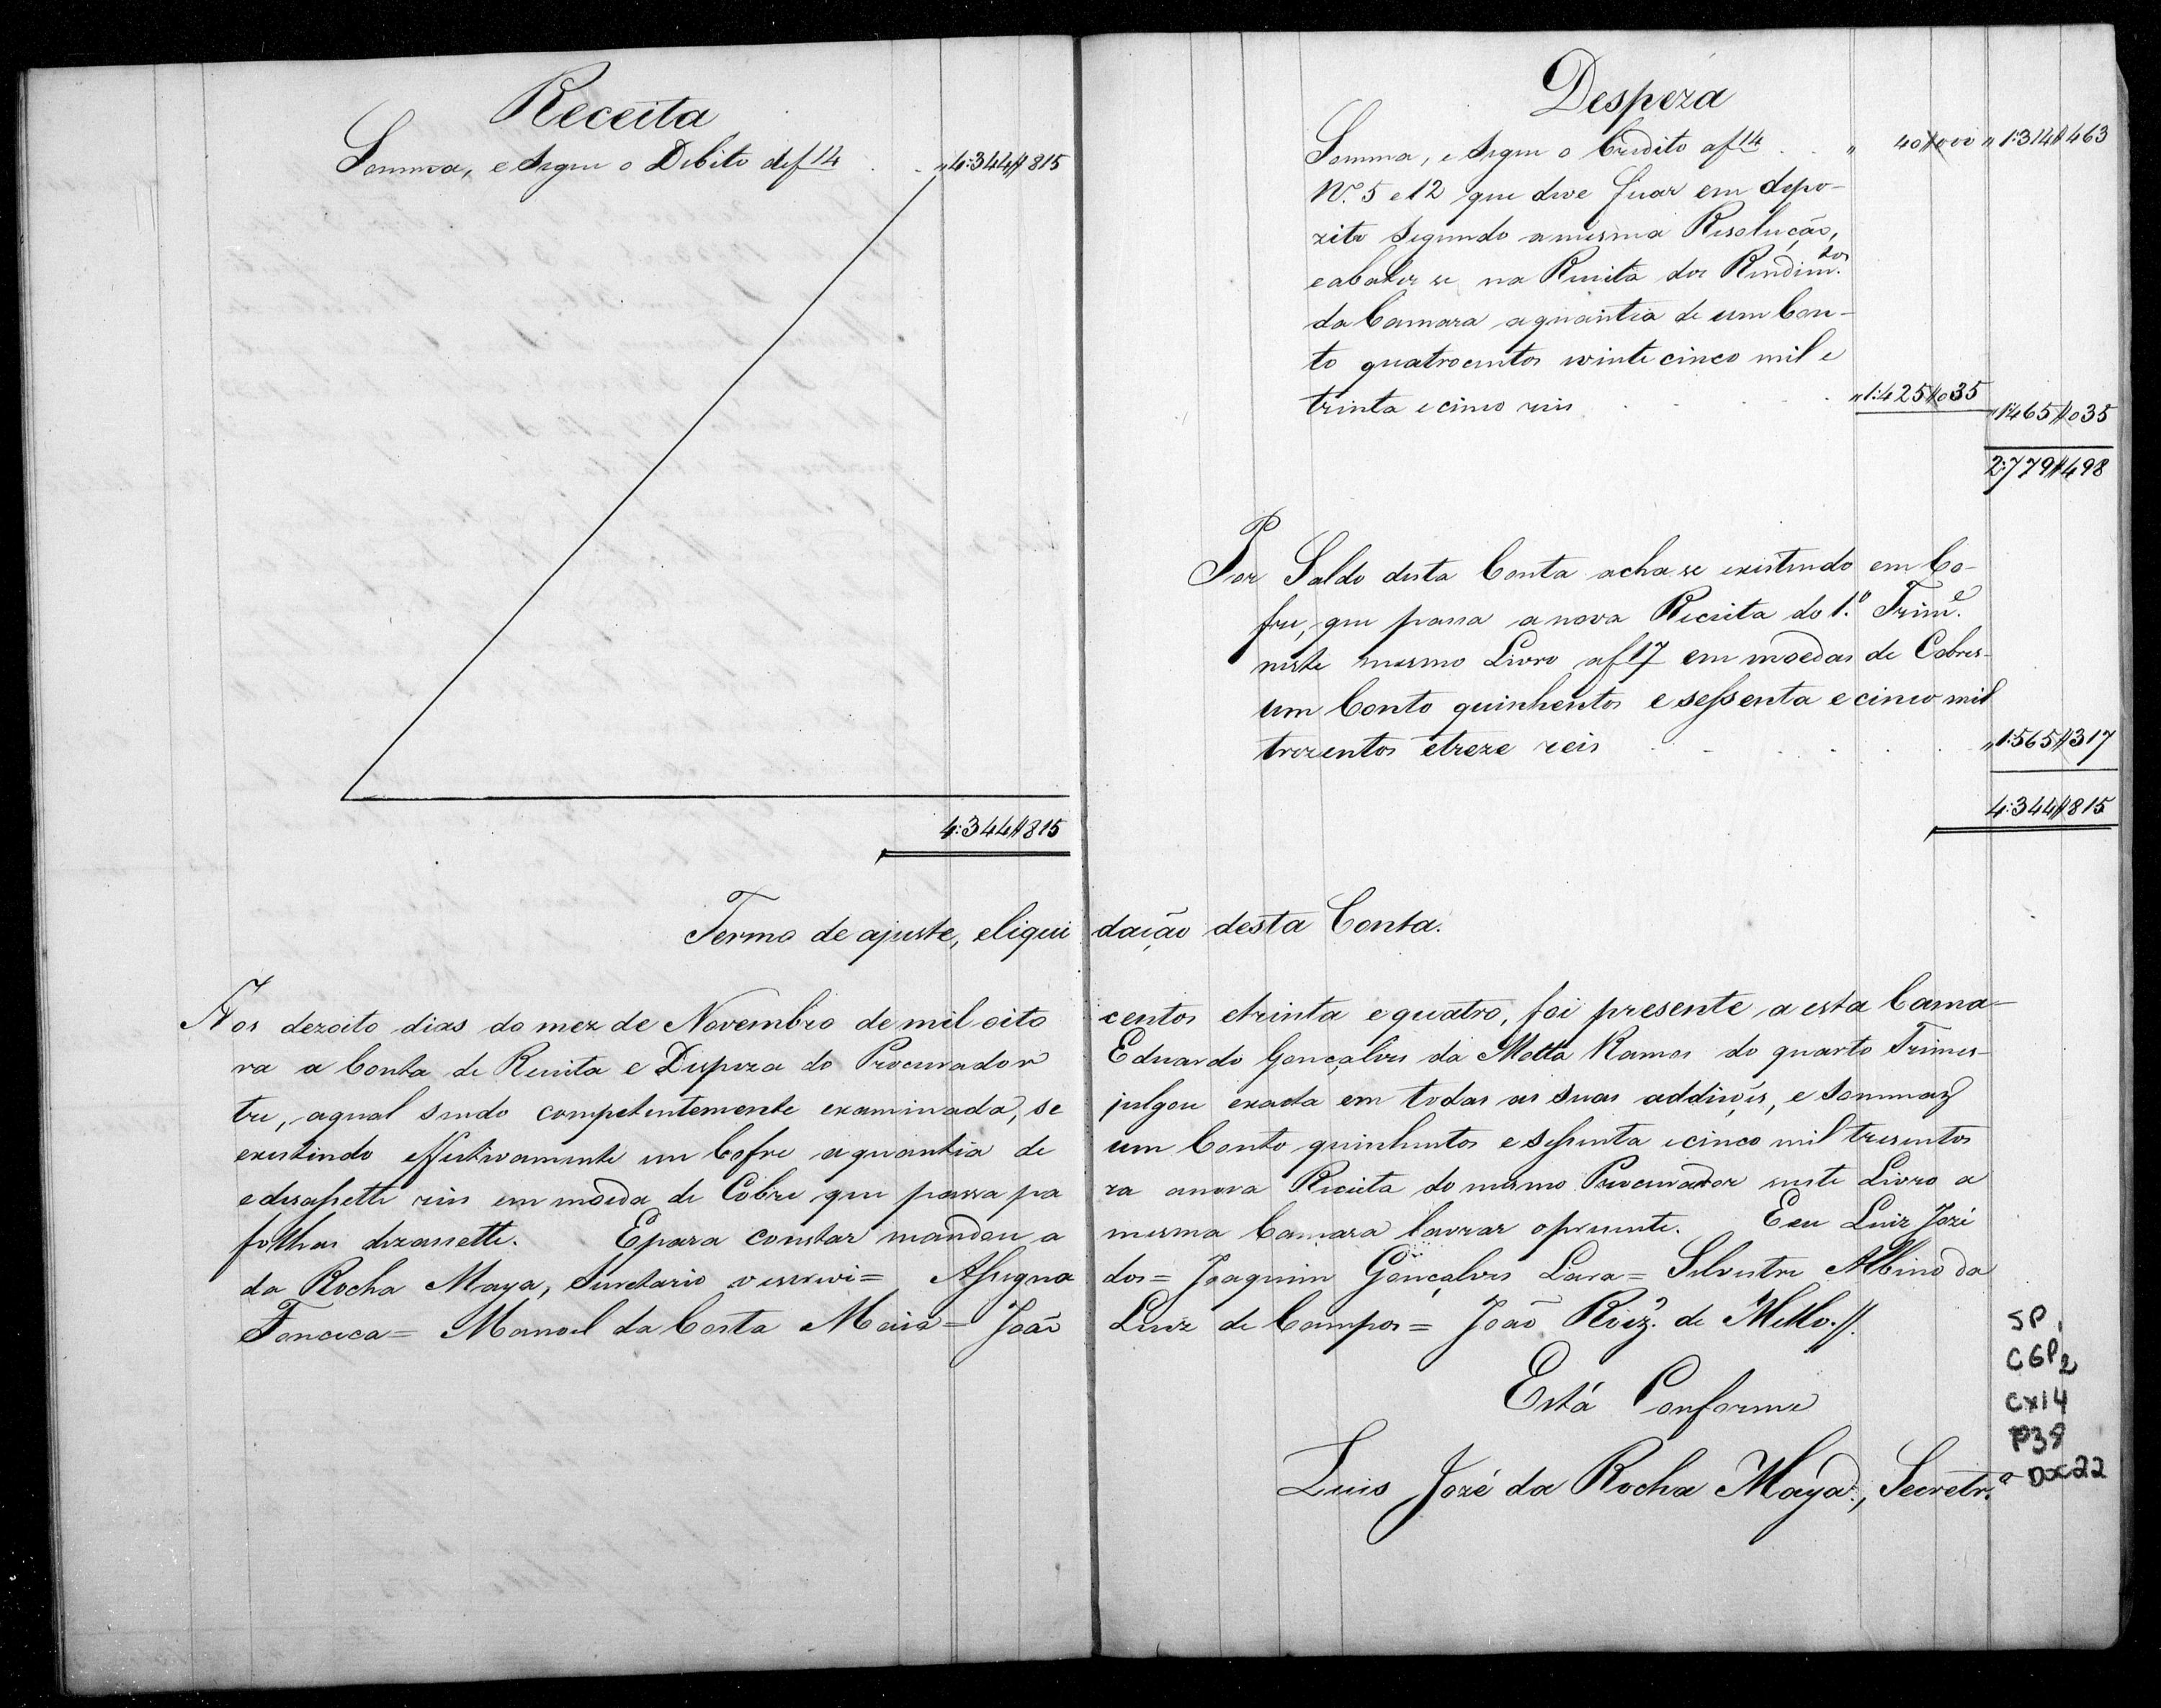 Receita
Somma, e segue o Debito def 14 . . " 4:344$815
4:344$815
Despeza
Somma, e segue o Credito af 14 . . " 40$000 " 1:314$463
N.º 5 e 12 que deve ficar em depo-
zito segundo a mesma Resolução,
e abater se na Receita dos Rendim.tos
da Camara a quantia de um Con-
to quatrocentos vinte cinco mil e
trinta e cinco reis . . . . . " 1:425$035
" 1:465$035
2:779$498
Por Saldo desta Conta acha se existindo em Co-
fre, que passa a nova Receita do 1.º Trim.e
neste mesmo Livro af 17 em moedas de Cobres
um Conto quinhentos e sessenta e cinco mil
trezentos etreze reis . . . . . " 1:565$317
4:344$815
Termo de ajuste, eliqui dação desta Conta.
Aos dezoito dias do mez de Novembro de mil oito centos etrinta e quatro, foi presente a esta Cama-
ra a Conta de Receita e Despeza do Procurador Eduardo Gonçalves da Motta Ramos do quarto Trimes-
tre, aqual sendo competentemente examinada, se julgou exacta em todas as suas addições, e sommas
existindo effectivamente em Cofre a quantia de um Conto quinhentos e sessenta e cinco mil tresentos
e desassette reis em moeda de Cobre que passa pa ra anova Receita do mesmo Procurador neste Livro a
folhas dezassette. Epara constar mandou a mesma Camara lavrar o presente. Eeu Luiz Jozé
da Rocha Maya, Secretario o escrevi = Assigna dos = Joaquim Gonçalves Lara = Silvestre Albino da
Fonceca = Manoel da Costa Maia = João Luiz de Campos = João Roiz. de Mello. //.
Está Conforme
Luis Jozé da Rocha Maya, Secretr.º
SP 1
CGP2
Cx14
P38
Doc22